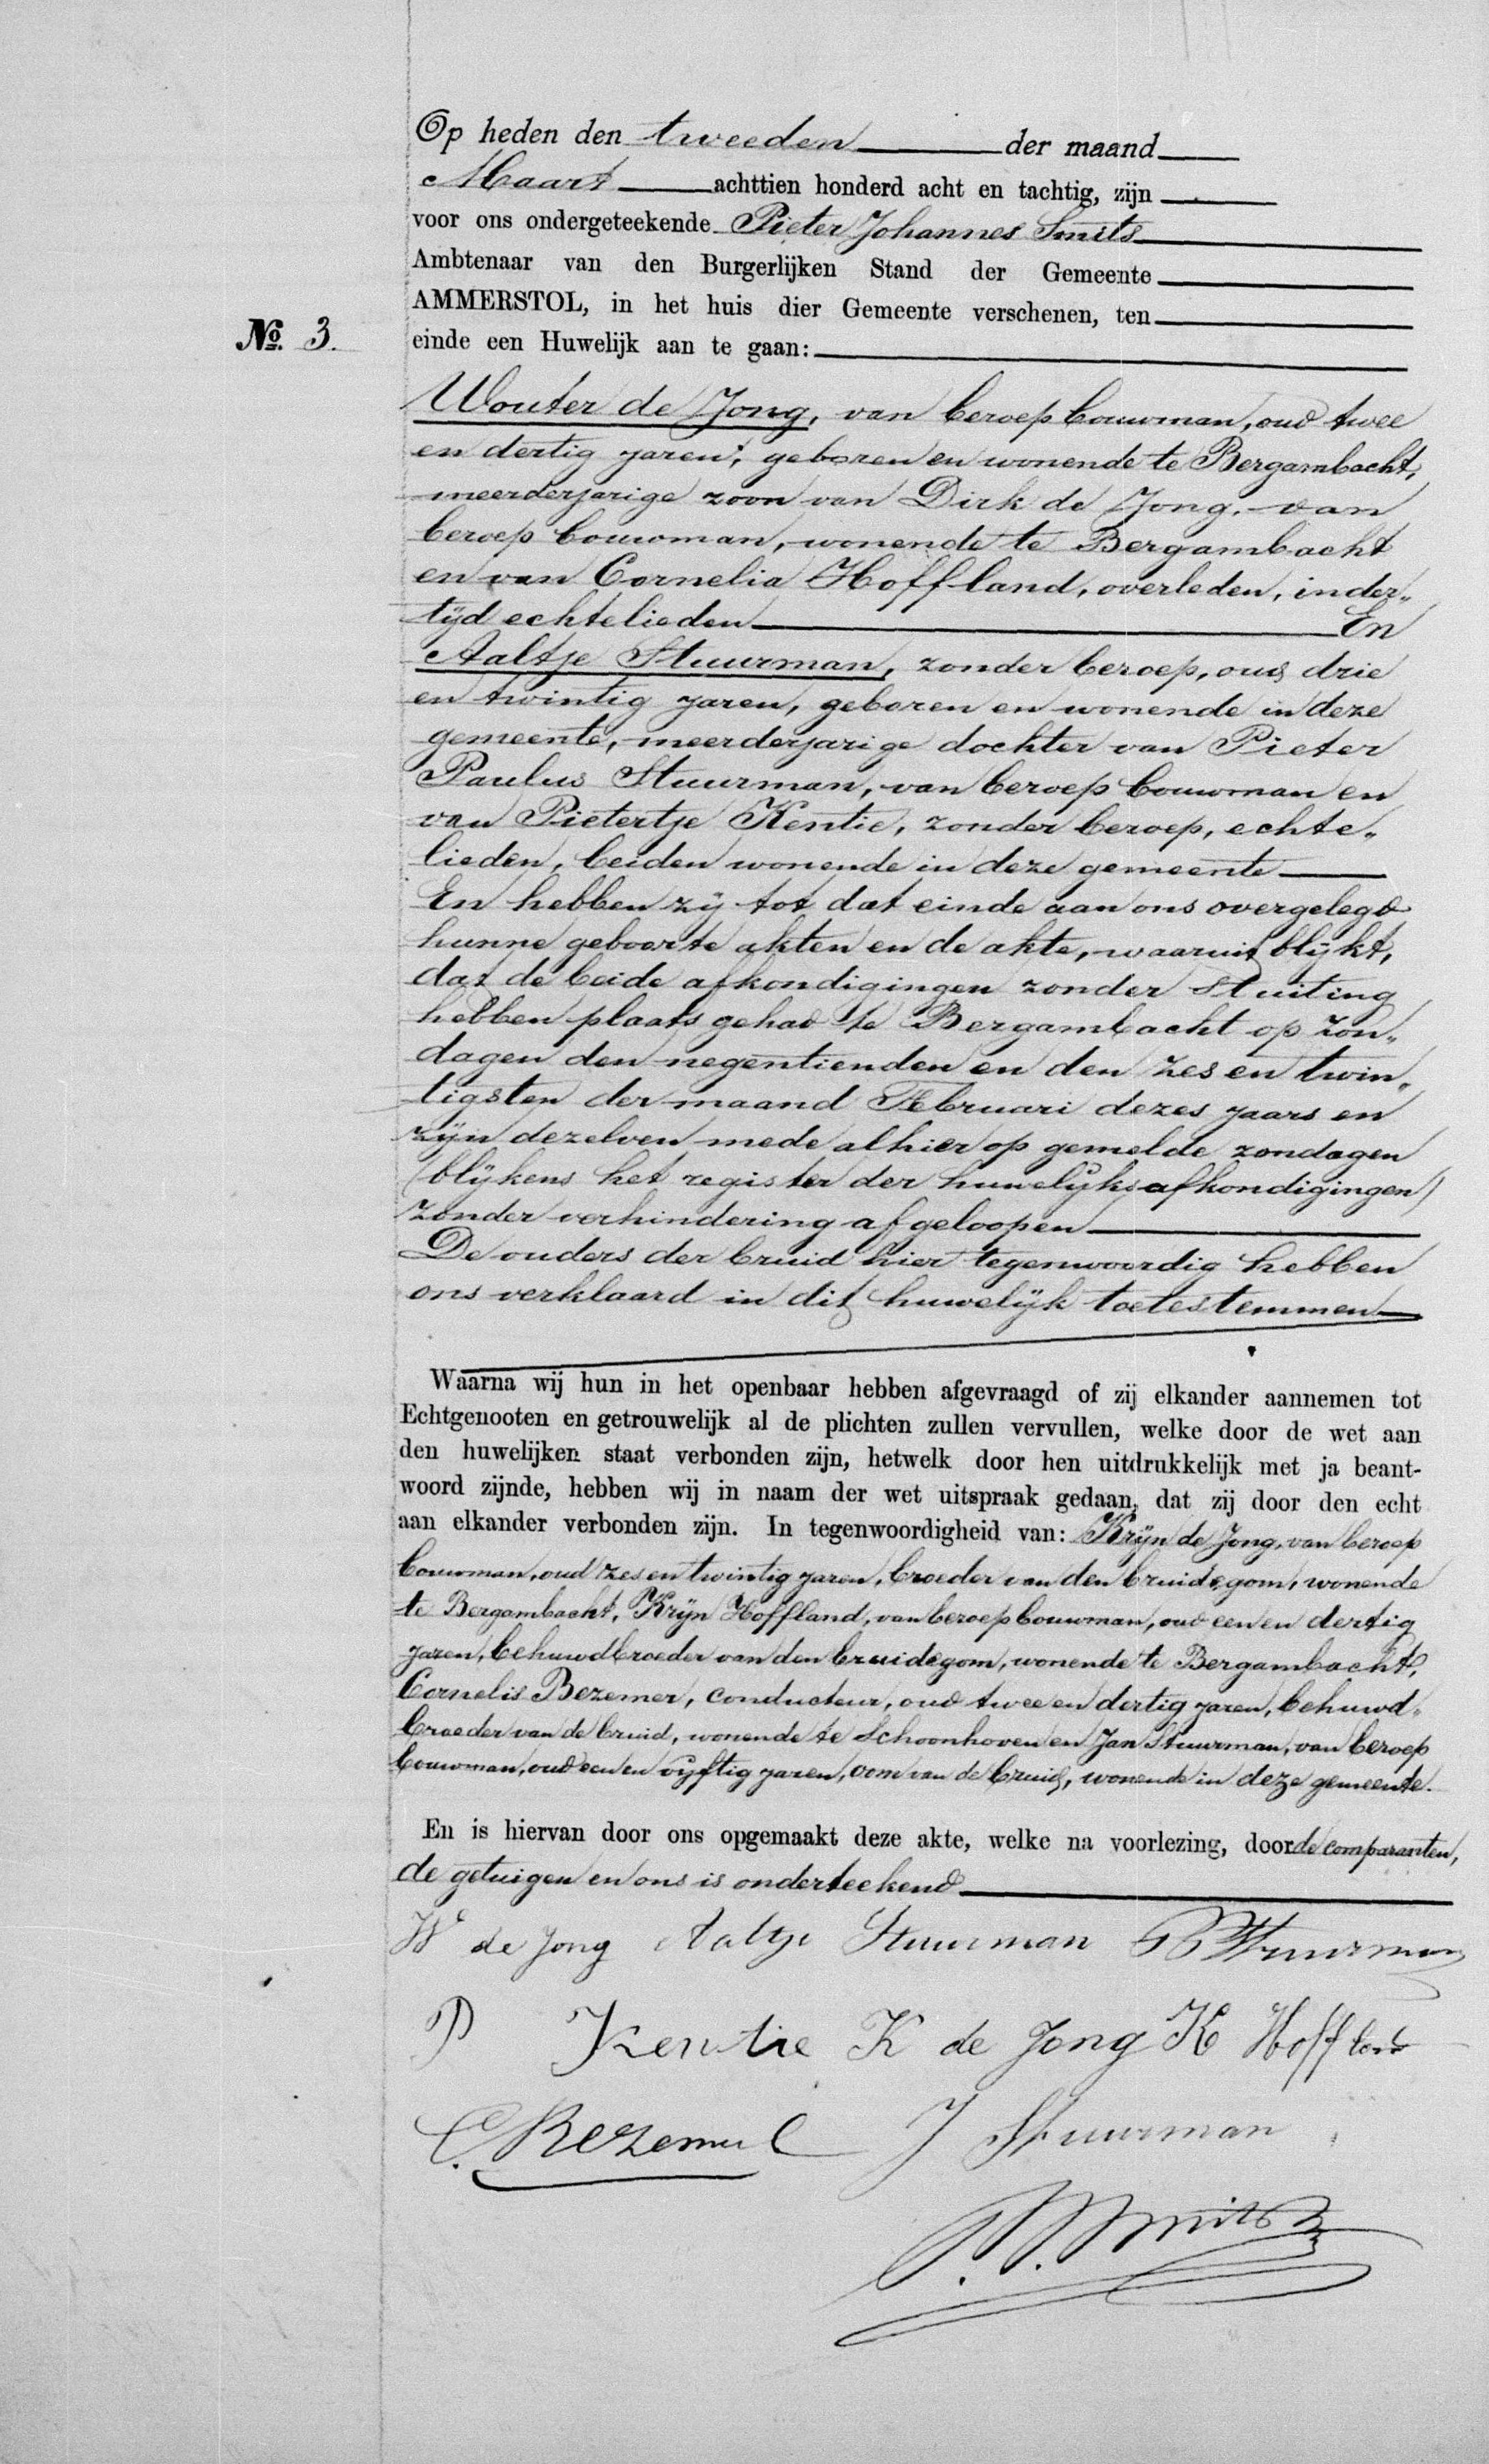 Op heden den tweeden der maand
Maart achttien honderd acht en tachtig, zijn
voor ons ondergeteekende Pieter Johannes Smits
Ambtenaar van den Burgerlijken Stand der Gemeente
AMMERSTOL, in het huis dier Gemeente verschenen, ten
No. 3.
einde een Huwelijk aan te gaan:
Wouter de Jong, van beroep bouwman, oud twee
en dertig jaren, geboren en wonende te Bergambacht,
meerderjarige zoon van Dirk de Jong, van
beroep bouwman, wonende te Bergambacht
en van Cornelia Hoffland, overleden, inder„
tijd echtelieden En
Aaltje Stuurman, zonder beroep, oud drie
en twintig jaren, geboren en wonende in deze
gemeente, meerderjarige dochter van Pieter
Paulus Stuurman, van beroep bouwman en
van Pietertje Kentie, zonder beroep, echte„
lieden, beiden wonende in deze gemeente
En hebben zij tot dat einde aan ons overgelegd
hunne geboorte akten en de akte, waaruit blijkt,
dat de beide afkondigingen zonder stuiting
hebben plaats gehad te Bergambacht op Zon„
dagen den negentienden en den zes en twin„
tigsten der maand Februari dezes jaars en
zijn dezelven mede alhier op gemelde zondagen
(blijkens het register der huwelijks afkondigingen)
zonder verhindering afgeloopen
De ouders der bruid hier tegenwoordig hebben
ons verklaard in dit huwelijk toetestemmen
Waarna wij hun in het openbaar hebben afgevraagd of zij elkander aannemen tot
Echtgenooten en getrouwelijk al de plichten zullen vervullen, welke door de wet aan
den huwelijken staat verbonden zijn, hetwelk door hen uitdrukkelijk met ja beant-
woord zijnde, hebben wij in naam der wet uitspraak gedaan, dat zij door den echt
aan elkander verbonden zijn. In tegenwoordigheid van: Krijn de Jong, van beroep
bouwman, oud zes en twintig jaren, broeder van den bruidegom, wonende
te Bergambacht, Krijn Hoffland, van beroep bouwman, oud een en dertig
jaren, behuwdbroeder van den bruidegom, wonende te Bergambacht,
Cornelis Bezemer, conducteur, oud twee en dertig jaren, behuwd„
broeder van de bruid, wonende te Schoonhoven en Jan Stuurman, van beroep
bouwman, oud een en vijftig jaren, oom van de bruid, wonende in deze gemeente.
En is hiervan door ons opgemaakt deze akte, welke na voorlezing, door de comparanten,
de getuigen en ons is onderteekend
W de Jong Aaltje Stuurman PP Stuurman
P Kentie K de Jong K Hoffland
C. Bezemer J Stuurman
P. J. Smits